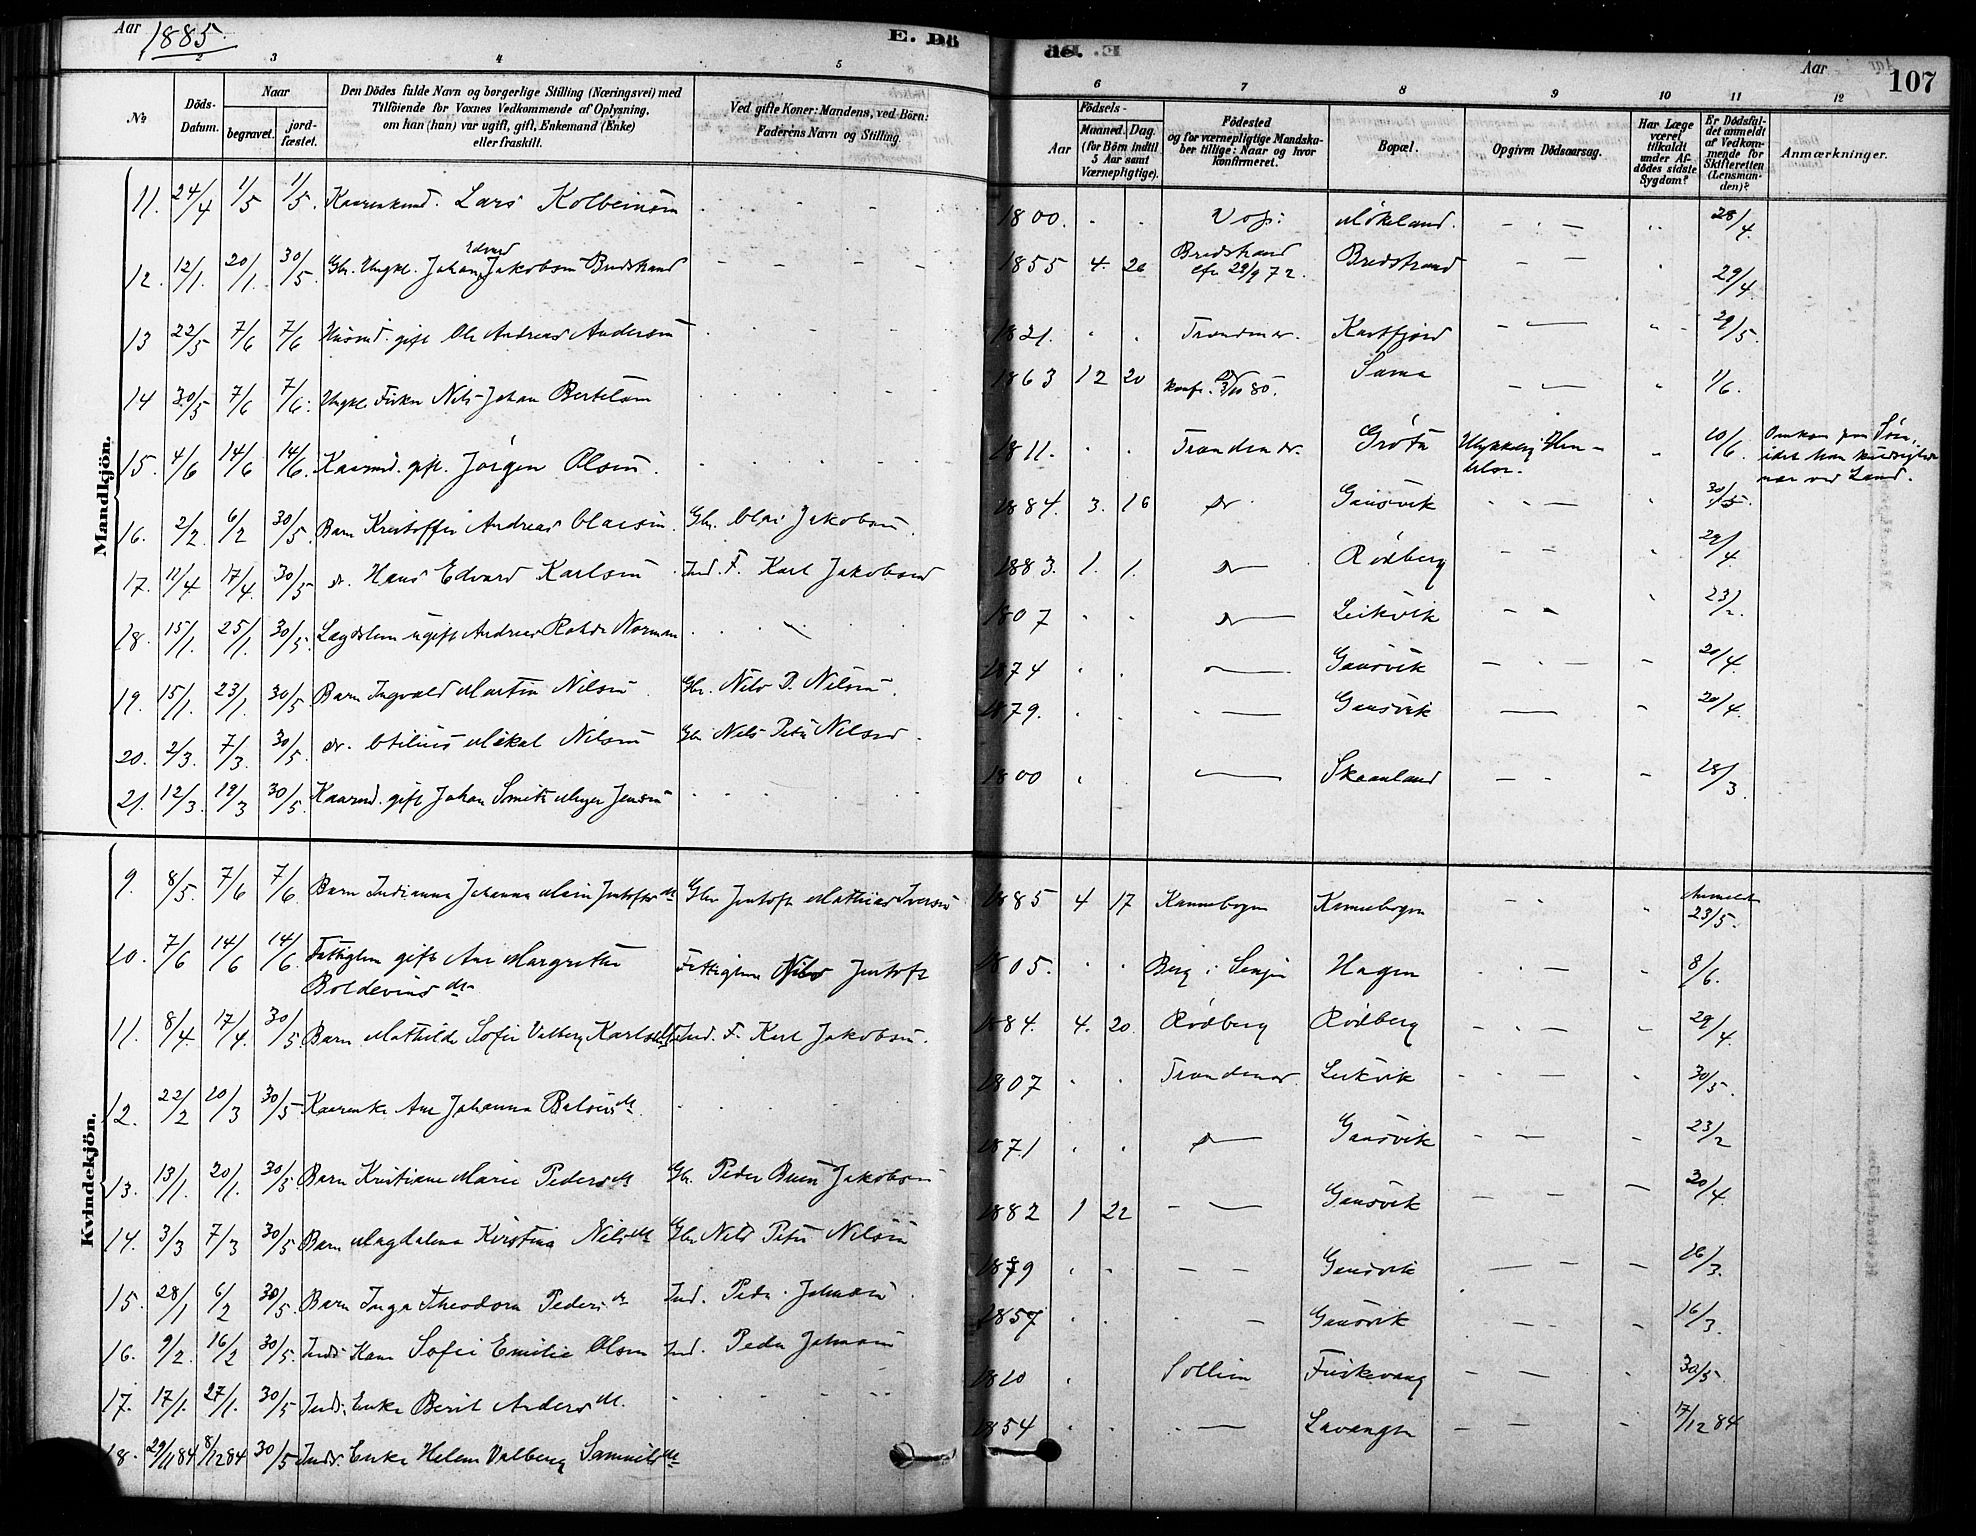 Aar 1885.
E. Dö
de. E.
Aar
107
2 3 4 5 6 7 8 9 10 11 12
№
Döds-Datum.
Naar
begravet.
jord-fæstet.
Den Dödes fulde Navn og borgerlige Stilling (Næringsvei) med
Tilföiende for Voxnes Vedkommende af Oplysning,
om han (hun) var ugift, gift, Enkemand (Enke)
eller fraskilt.
Ved gifte Koner: Mandens, ved Börn:
Faderens Navn og Stilling.
Födsels-
Aar
Maaned. Dag.
(for Börn indtil
5 Aar samt
Værnepligtige).
Födested
og for værnepligtige Mandska-
ber tillige: Naar og hvor
konfirmeret.
Bopæl.
Opgiven Dödsaarsag.
Har Læge
været
tilkaldt
under Af-
dödes sidste
Sygdom?
Er Dödsfal-
det anmeldt
af Vedkom-
mende for
Skifteretten
(Lensman-
den)?
Anmærkninger.
Mandkjön.
11. 24/4 1/5 1/5. Lars Kolbeinsen 1800. Voss: Mökeland. 28/4.
12. 12/1. 20/1. 30/5 Gbr. Ungkl. Johan Edvard Jakobsen Bredstrand 1855 4. 26 Bredstrand cfr 29/9 72. Bredstrand 29/4.
13 22/5 7/6 7/6 Husmd. gift Ole Andreas Andersen 1821. Trondenæs. Kastfjord 29/5.
14 30/5 7/6 7/6. Ungkl. Fisker Nils Johan Bertelsen 1863 12 20 konf. 3/10 80. Sama 1/6.
15. 4/6 14/6 14/6. Kaarmd. gift. Jörgen Olsen. 1811. Trondenæs. Gröta Ulykkelig Hen-delse. 10/6. Omkom paa Söen, idet han kuldseilede nær ved Land.
16. 2/2. 6/2 30/5. Barn Kristoffer Andreas Olaisen. Gbr. Olai Jakobsen. 1884. 3. 16 do Gausvik 30/5.
17. 11/4 17/4. 30/5 do. Hans Edvard Karlsen Ind. F. Karl Jakobsen 1883. 1. 1. do Rödberg 29/4
18. 15/1. 25/1. 30/5. Lægdslem ugift Andreas Rohde Norman 1807 do Leikvik 23/2.
19. 15/1. 23/1. 30/5 Barn Ingvald Martin Nilsen Gbr. Nils P. Nilsen. 1874 Gausvik 20/4.
20. 2/3. 7/3. 30/5. do. Otilius Mikal Nilsen Gbr Nils Peter Nilsen. 1879. Gausvik 20/4.
21. 12/3. 19/3 30/5. Kaarmd. gift Johan Smith Meyer Jensen 1800 Skaanland 28/3.
Kvindekjön.
9. 8/5. 7/6 7/6. Barn Indianna Johanna Marie Jentoftsd. Gbr Jentoft Mathias Iversen 1885 4 17 Kannebogen Kannebogen Anmeldt 23/5.
10. 7/6 14/6 14/6. Fattiglem gift Ane Margrethe Boldevinsd. Fattiglem Nils Jentoft 1805. Berg i Senjen Hagen 8/6.
11. 8/4. 17/4. 30/5 Barn Mathilde Sofie Valborg Karlsd. Ind. F. Karl Jakobsen. 1884. 4. 20. Rödberg Rödberg 29/4.
12. 22/2 20/3 30/5 Kaarenke Ane Johanna 1807 Trondenæs. Leikvik 30/5.
13. 13/1. 20/1. 30/5. Barn Kristiane Marie Pedersd. Gbr. Peder Buen Jakobsen 1871 do Gausvik 23/2
14. 3/3 7/3 30/5. Barn Magdalena Kirstina Nilsd. Gbr Nils Peter Nilsen 1882 1 22 Gausvik 20/4.
15. 28/1 6/2 30/5. Barn Inga Theodora Pedersd. Ind. Peder Johnsen. 1879 Gausvik 16/3.
16. 9/2. 16/2 30/5. Inds. Kone Sofie Emilie Olsen Ind. Peder Johnsen 1857 Gausvik 16/3.
17. 17/1. 27/1. 30/5 Inds. Enke Berit Andersd. 1810 Sollien Fiskevang 30/5.
18. 29/11 84 8/12 84 30/5 Inds. Enke Helene Valberg Samuelsd. 1854 Lavangen 17/12 84